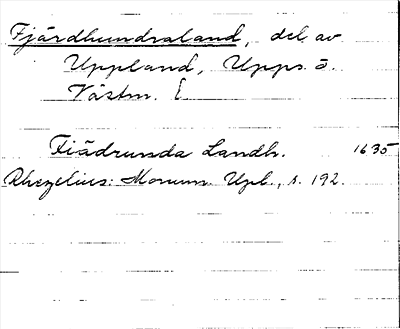 Fjärdhundraland, del av
Uppland, Upps. o.
Västm. l.
Fiädrunda Landh. 1635
Rhezelius: Monum. Upl., s. 192.